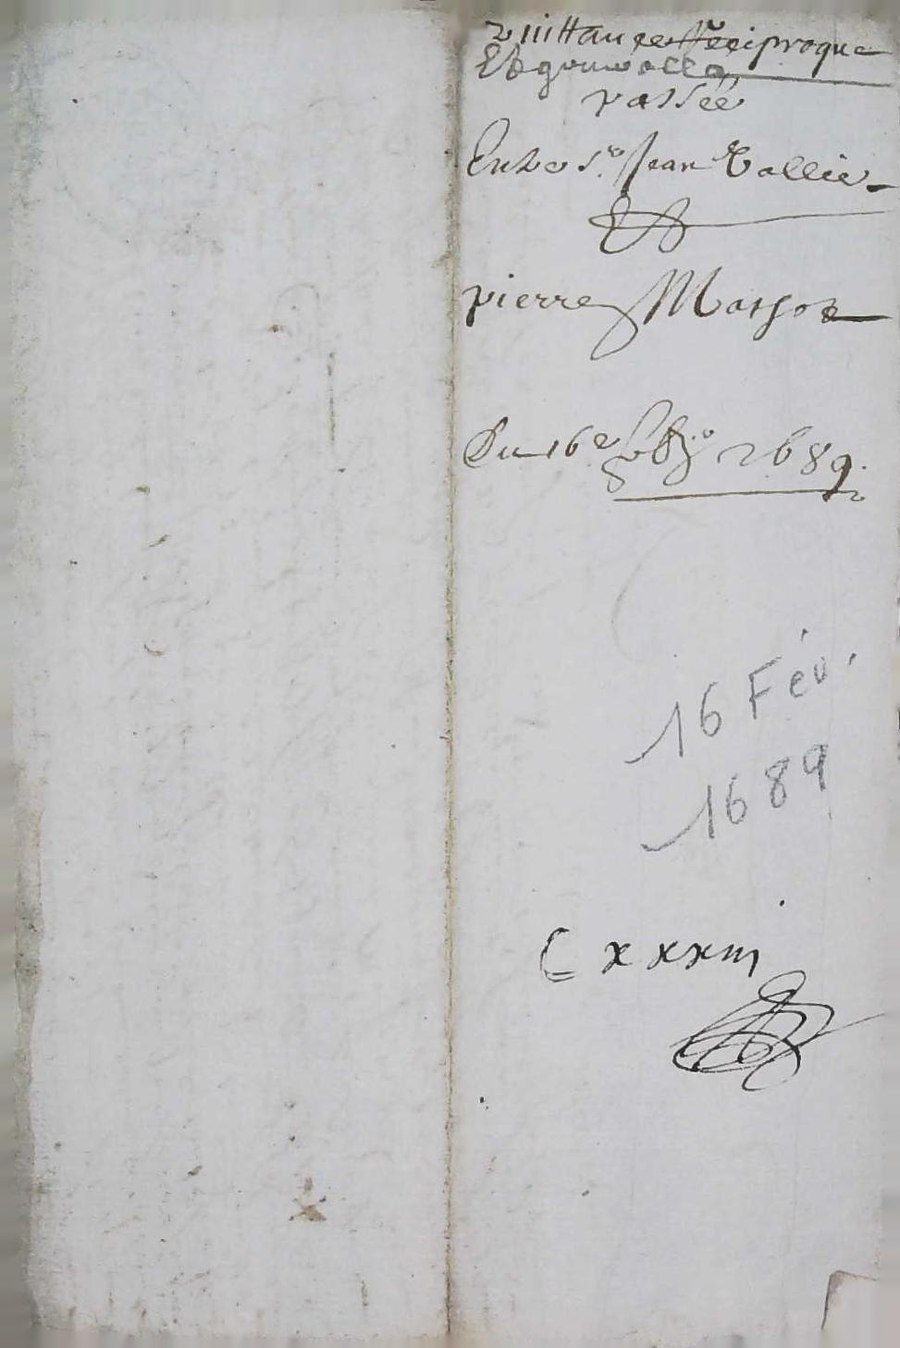 quittance Reciproque
Et generalle
passée
Entre Sr. Jean Vallie
Et
pierre Masson
Du 16e febr. 1689.
16 Fév.
1689
Cxxxiii